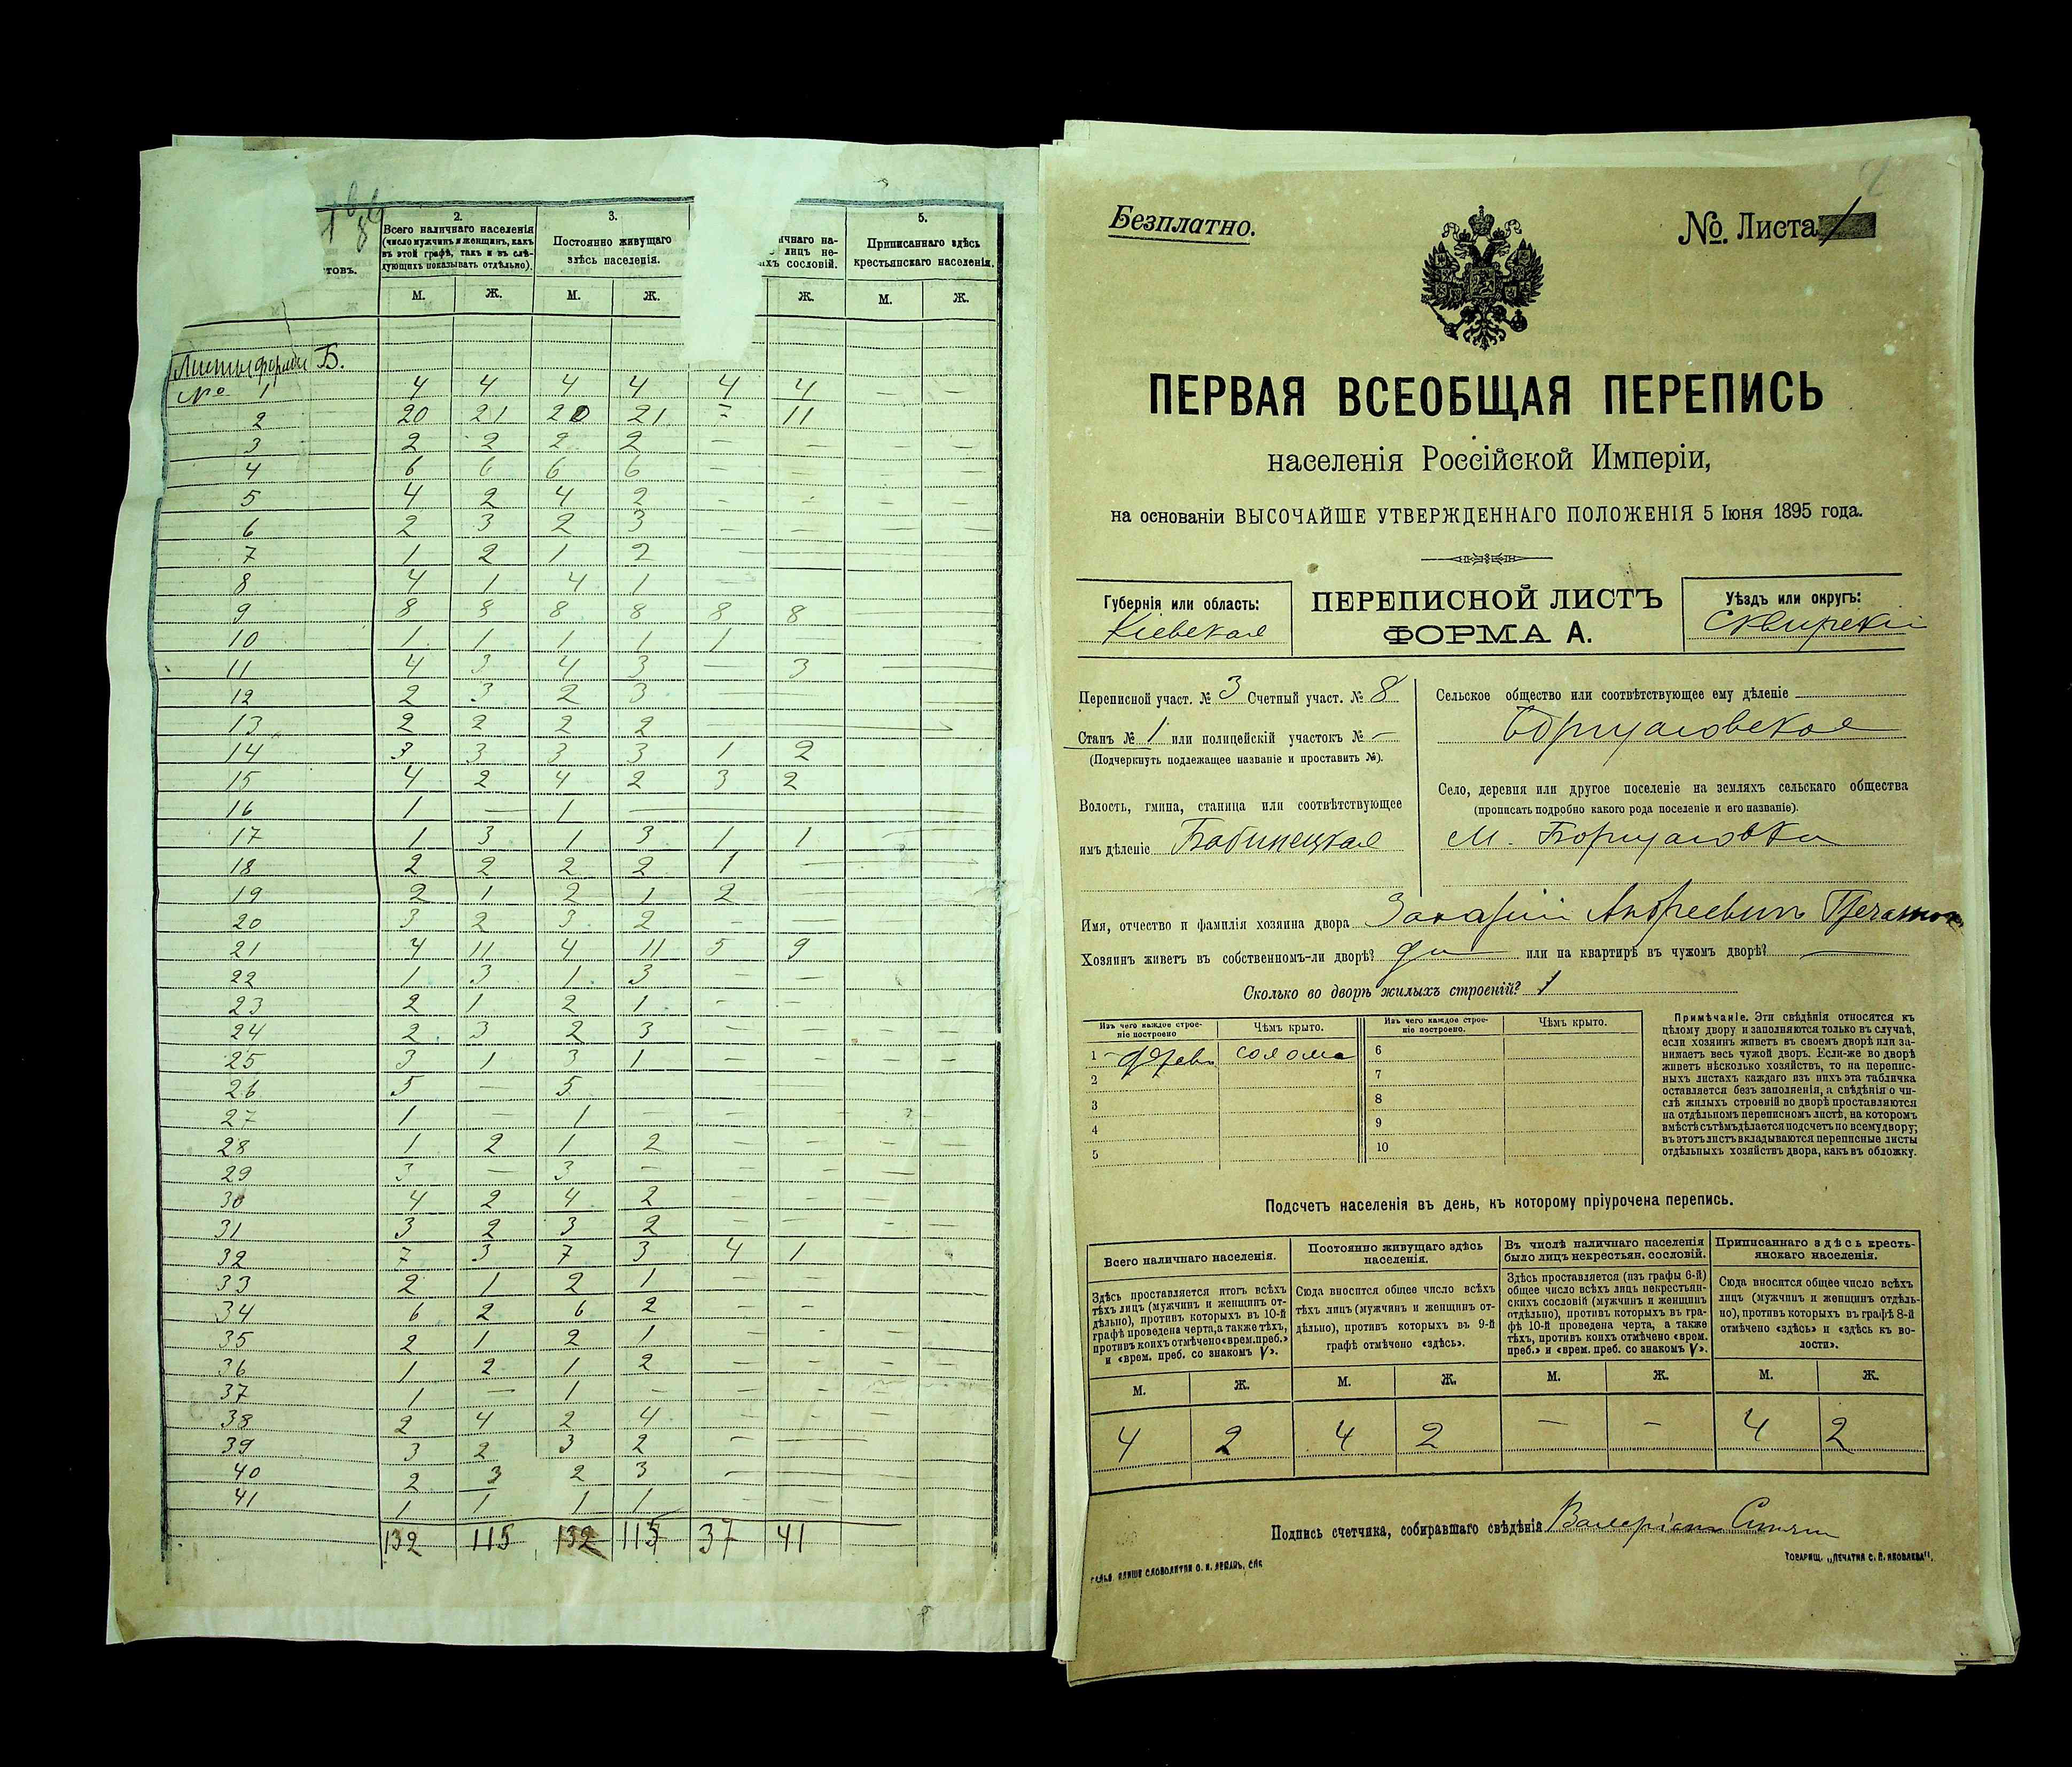 2. 3. 5.
Всего наличнаго населенія
(число мужчинъ и женщинъ, какъ
въ этой графѣ, такъ и въ слѣ-
дующихъ показывать отдѣльно).
Постоянно живущаго
здѣсь населенія.
ичнаго на-
лицъ не-
ихъ сословій.
Приписаннаго здѣсь
крестьянскаго населенія.
стовъ.
М. Ж. М. Ж. Ж. М. Ж.
Листы формы Б.
№ 1 4 4 4 4 4 4 — —
2 20 21 20 21 - 11
3 2 2 2 2 — — — —
4 6 6 6 6 — — — —
5 4 2 4 2 — — — —
6 2 3 2 3 — — — —
7 1 2 1 2 —
8 4 1 4 1 —
9 8 8 8 8 8 8
10 1 1 1 1 1
11 4 3 4 3 — 3 —
12 2 3 2 3 — —
13 2 2 2 2 —
14 3 3 3 3 1 2
15 4 2 4 2 3 2
16 1 — 1 —
17 1 3 1 3 1 1 —
18 2 2 2 2 1 — —
19 2 1 2 1 2 —
20 3 2 3 2 — —
21 4 11 4 11 5 9
22 1 3 1 3 — —
23 2 1 2 1 — —
24 2 3 2 3 — — — —
25 3 1 3 1 — — — —
26 5 — 5
27 1 — 1 — — —
28 1 2 1 2 — — — —
29 3 — 3 — — — —
30 4 2 4 2 — — —
31 3 2 3 2 — — — —
32 7 3 7 3 4 1
33 2 1 2 1 — —
34 6 2 6 2 — —
35 2 1 2 1 — — —
36 1 2 1 2 — — — —
37 1 — 1 — — — —
38 2 4 2 4 — — —
39 3 2 3 2 — —
40 2 3 2 3 —
41 1 1 1 1 — —
132 115 132 115 37 41
Безплатно.
№ Листа 1
ПЕРВАЯ ВСЕОБЩАЯ ПЕРЕПИСЬ
населенія Россійской Имперіи,
на основаніи ВЫСОЧАЙШЕ УТВЕРЖДЕННАГО ПОЛОЖЕНІЯ 5 Іюня 1895 года.
Губернія или область:
Кіевская
ПЕРЕПИСНОЙ ЛИСТЪ
ФОРМА А.
Уѣздъ или округъ:
Сквирскій
Переписной участ. № 3 Счетный участ. № 8
Станъ № 1 или полицейскій участокъ № —
(Подчеркнуть подлежащее названіе и проставить №).
Волость, гмина, станица или соотвѣтствующее
имъ дѣленіе Бабинецкая
Сельское общество или соотвѣтствующее ему дѣленіе
Борщаговское
Село, деревня или другое поселеніе на земляхъ сельскаго общества
(прописать подробно какого рода поселеніе и его названіе).
М. Борщаговка
Имя, отчество и фамилія хозяина двора Захарій Андреевичъ
Хозяинъ живетъ въ собственномъ-ли дворѣ? да или на квартирѣ въ чужомъ дворѣ? —
Сколько во дворѣ жилыхъ строеній? 1
Изъ чего каждое строе-
ніе построено
Чѣмъ крыто.
Изъ чего каждое строе-
ніе построено.
Чѣмъ крыто.
1 – дерев. солома 6
2 7
3 8
4 9
5 10
Примѣчаніе. Эти свѣдѣнія относятся къ
цѣлому двору и заполняются только въ случаѣ,
если хозяинъ живетъ въ своемъ дворѣ или за-
нимаетъ весь чужой дворъ. Если-же во дворѣ
живетъ нѣсколько хозяйствъ, то на перепис-
ныхъ листахъ каждаго изъ нихъ эта табличка
оставляется безъ заполненія, а свѣдѣнія о чи-
слѣ жилыхъ строеній во дворѣ проставляются
на отдѣльномъ переписномъ листѣ, на которомъ
вмѣстѣ съ тѣмъ дѣлается подсчетъ по всему двору;
въ этотъ листъ вкладываются переписные листы
отдѣльныхъ хозяйствъ двора, какъ въ обложку.
Подсчетъ населенія въ день, къ которому пріурочена перепись.
Всего наличнаго населенія.
Здѣсь проставляется итогъ всѣхъ
тѣхъ лицъ (мужчинъ и женщинъ от-
дѣльно), противъ которыхъ въ 10-й
графѣ проведена черта, а также тѣхъ,
противъ коихъ отмѣчено «врем. преб.»
и «врем. преб. со знакомъ V».
Постоянно живущаго здѣсь
населенія.
Сюда вносится общее число всѣхъ
тѣхъ лицъ (мужчинъ и женщинъ от-
дѣльно), противъ которыхъ въ 9-й
графѣ отмѣчено «здѣсь».
Въ числѣ наличнаго населенія
было лицъ некрестьян. сословій.
Здѣсь проставляется (изъ графы 6-й)
общее число всѣхъ лицъ некрестьян-
скихъ сословій (мужчинъ и женщинъ
отдѣльно), противъ которыхъ въ гра-
фѣ 10-й проведена черта, а также
тѣхъ, противъ коихъ отмѣчено «врем.
преб.» и «врем. преб. со знакомъ V».
Приписаннаго здѣсь кресть-
янскаго населенія.
Сюда вносится общее число всѣхъ
лицъ (мужчинъ и женщинъ отдѣль-
но), противъ которыхъ въ графѣ 8-й
отмѣчено «здѣсь» и «здѣсь къ во-
лости».
М. Ж. М. Ж. М. Ж. М. Ж.
4 2 4 2 — — 4 2
Подпись счетчика, собиравшаго свѣдѣнія Валеріанъ
ТОВАРИЩ. „ПЕЧАТНЯ С. П. ЯКОВЛЕВА".